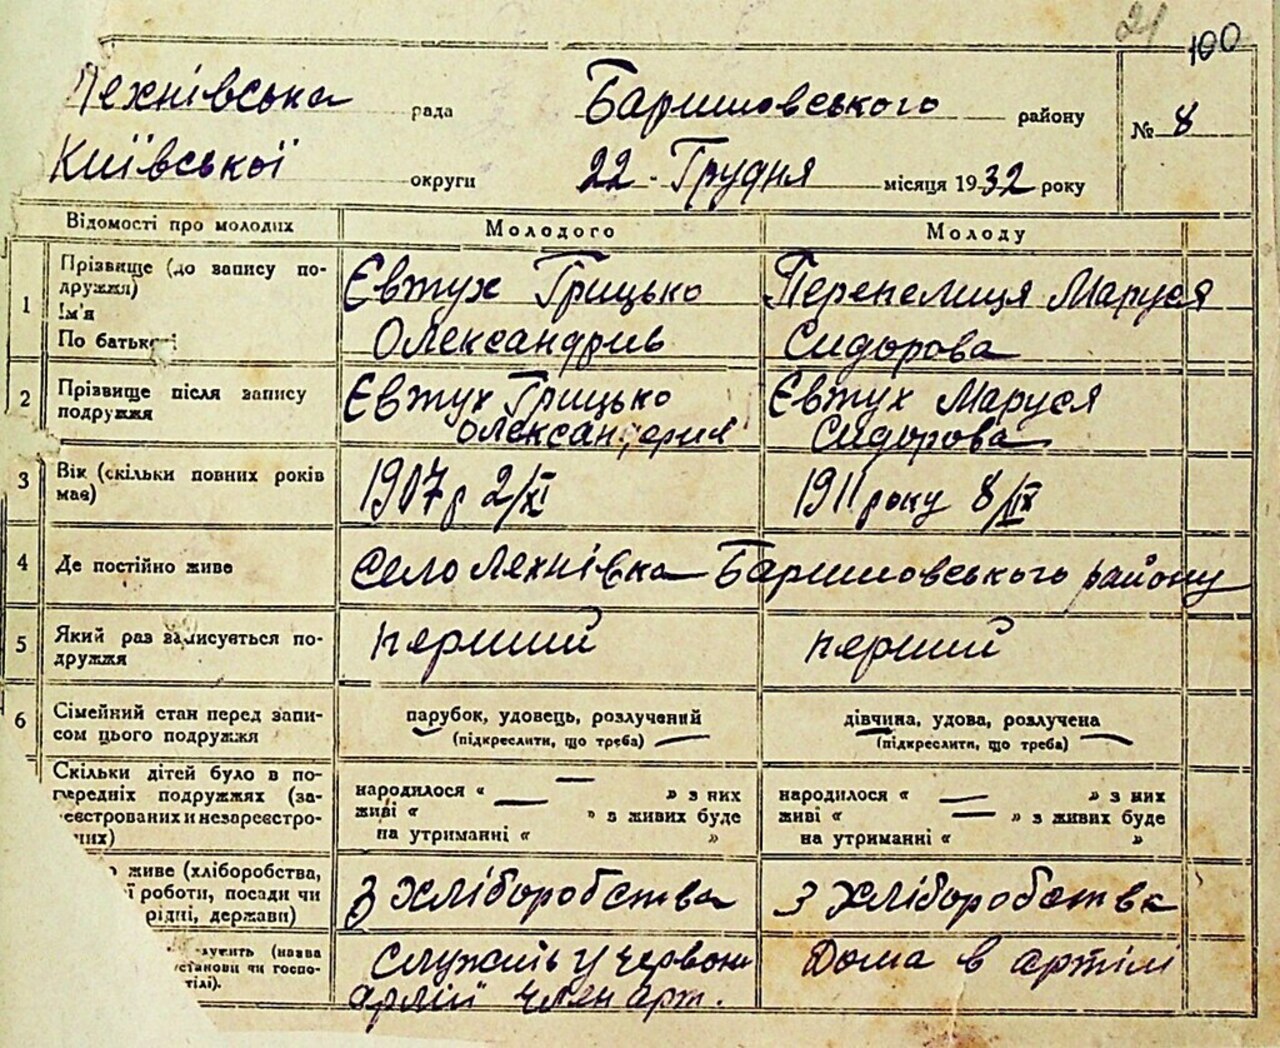 21 100
Лехнівська рада Баришовського району № 8
Київської округи 22 Грудня місяця 1932 року
Відомості про молодих Молодого Молоду
1 Прізвище (до запису по-
дружжя)
Ім'я
По батькові
Євтух Грицько
Олександрив
Перепелиця Маруся
Сидорова
2 Прізвище після запису
подружжя
Євтух Грицько
Євтух Маруся
Сидорова
3 Вік (скільки повних років
має)
1907 р 2/XI
1911 року 8/IX
4 Де постійно живе
Село Лехнівка Баришовського району
5 Який раз записується по-
дружжя
перший
перший
6 Сімейний стан перед запи-
сом цього подружжя
парубок, удовець, розлучений
(підкреслити, що треба)
дівчина, удова, розлучена
(підкреслити, що треба)
Скільки дітей було в по-
передніх подружжях (за-
реєстрованих и незареєстро-
них)
народилося « — » з них
живі « — » з живих буде
на утриманні « »
народилося « — » з них
живі « — » з живих буде
на утриманні « »
живе (хліборобства,
ї роботи, посади чи
рідні, держави)
З Хліборобства
З Хліборобства
(назва
установи чи госпо-
тілі).
Служить у червон
армії член арт.
Дома в артілі